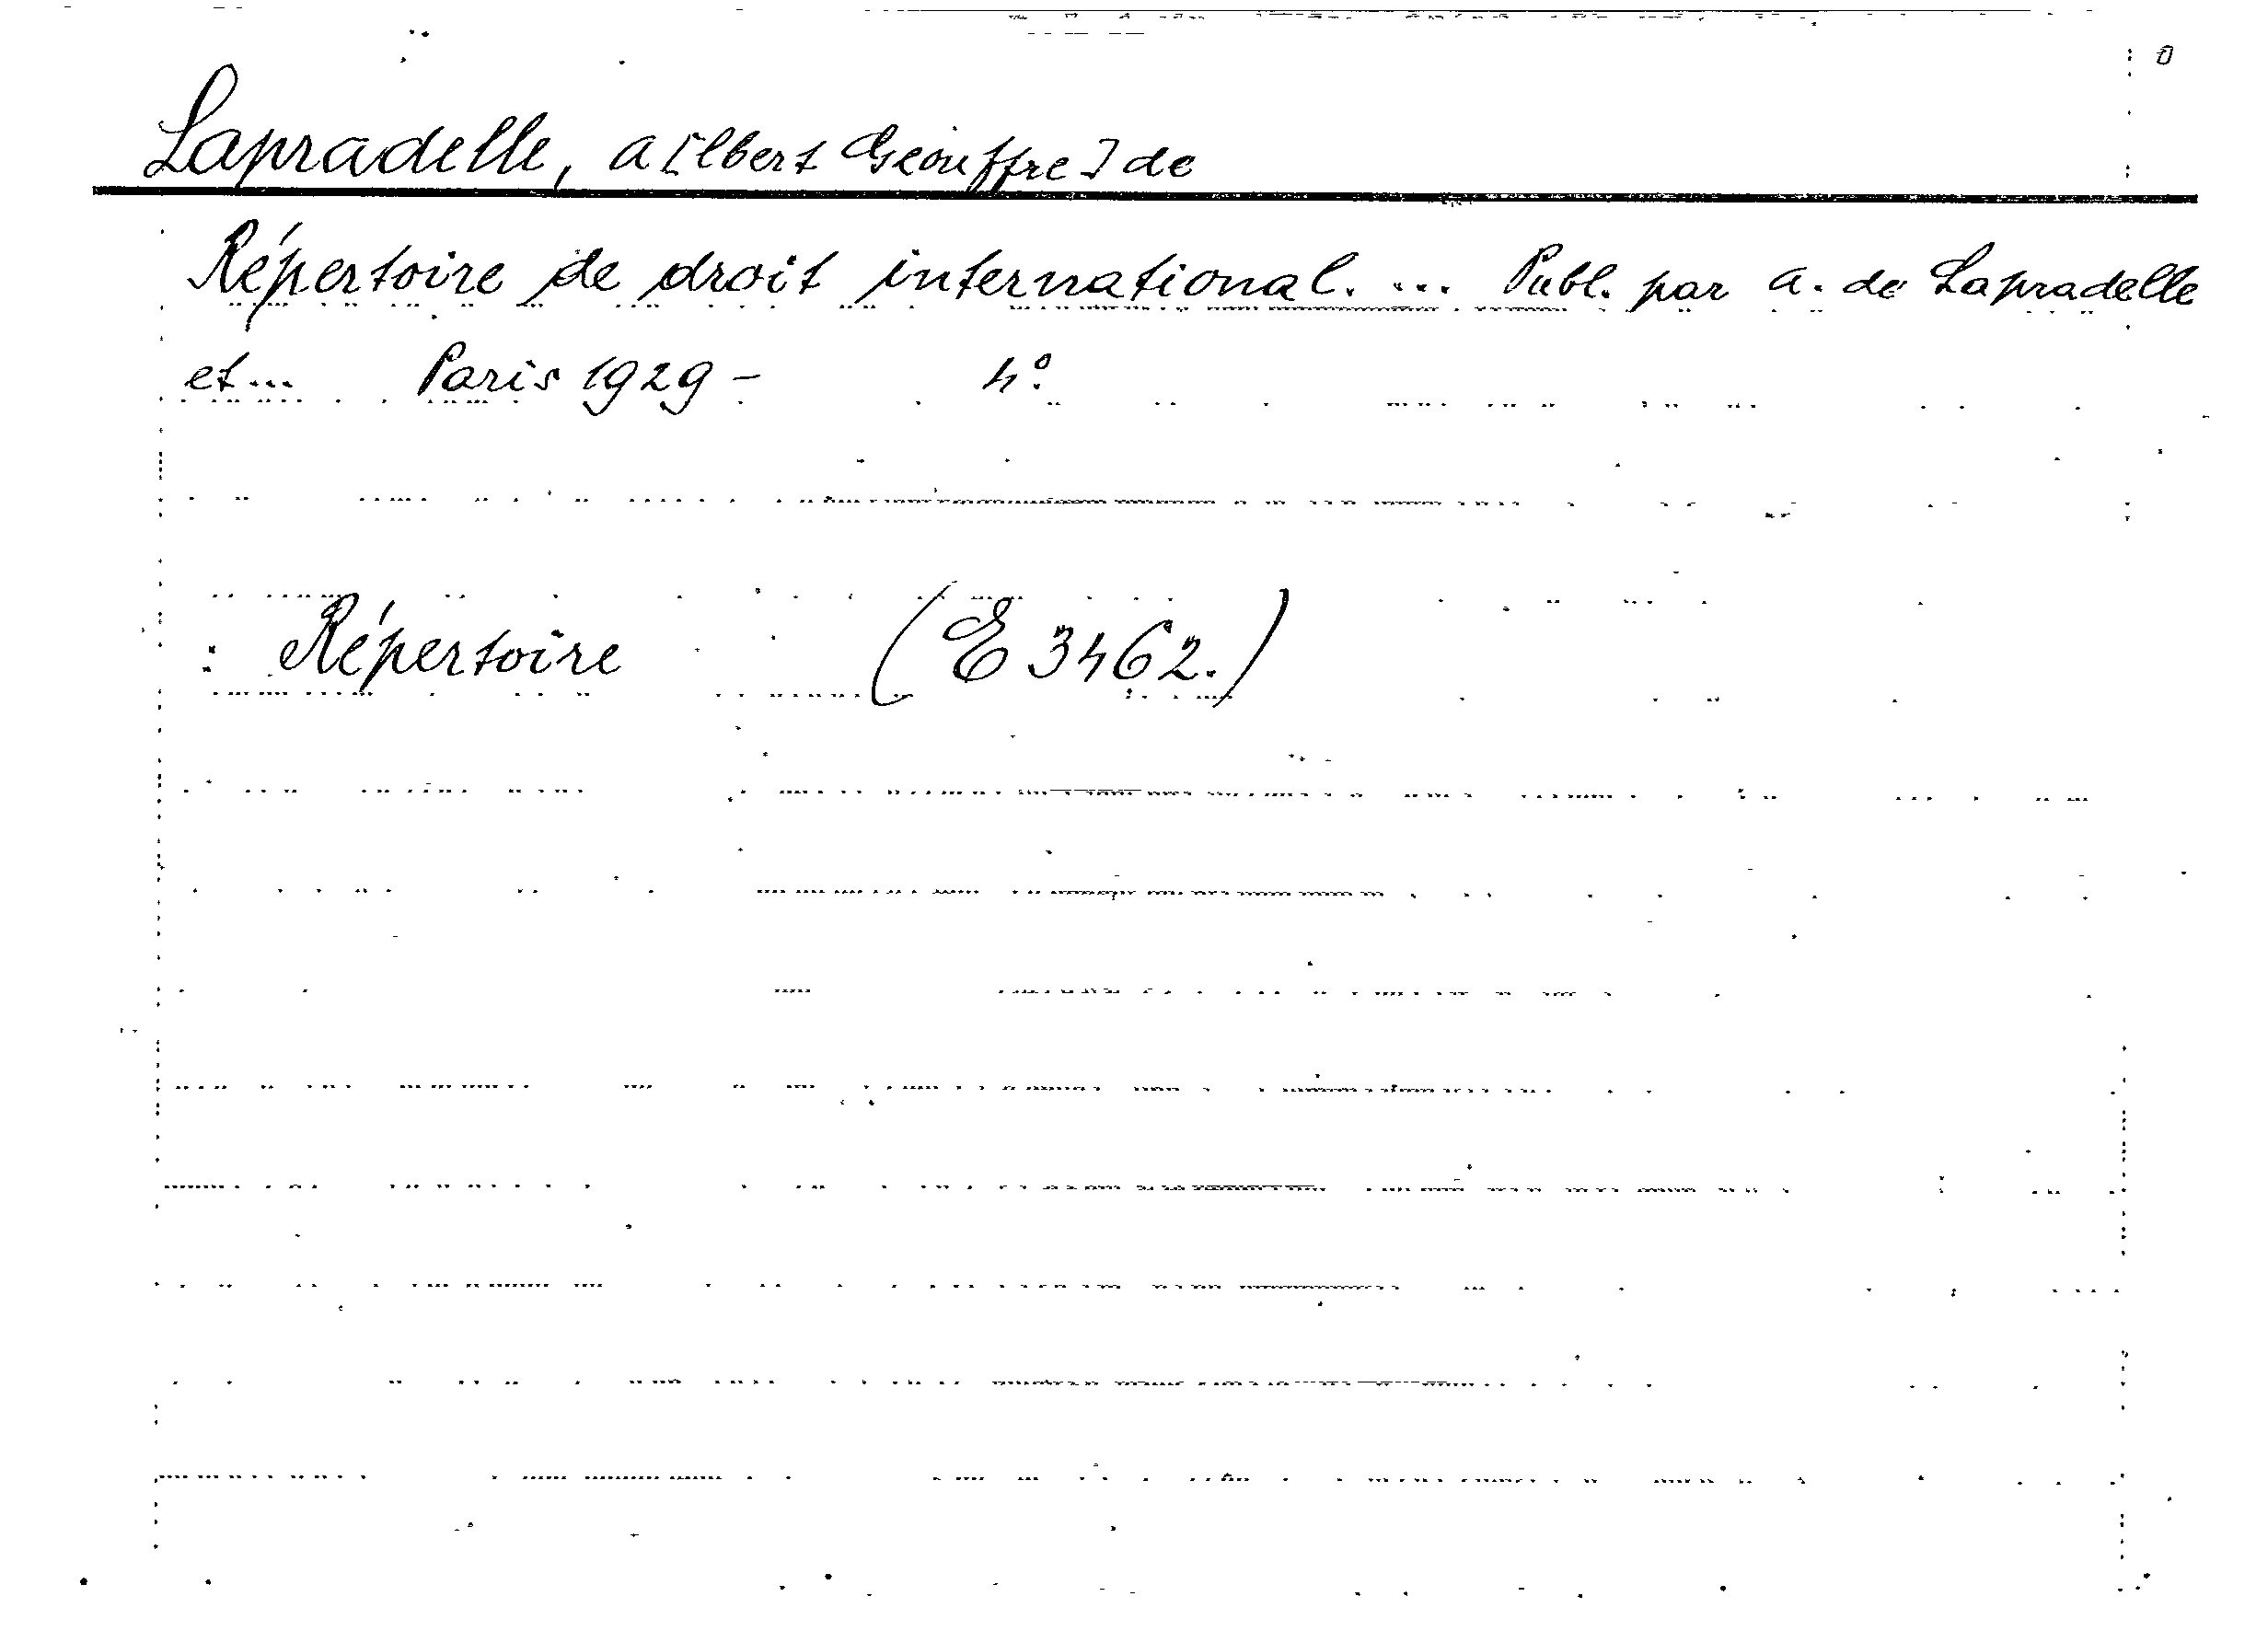 Lapradelle, A[lbert Geouffre] de
Répertoire de droit international. ... Publ. par A. de Lapradelle
et ... Paris 1929 - 4:o
: Répertoire (E 3462.)